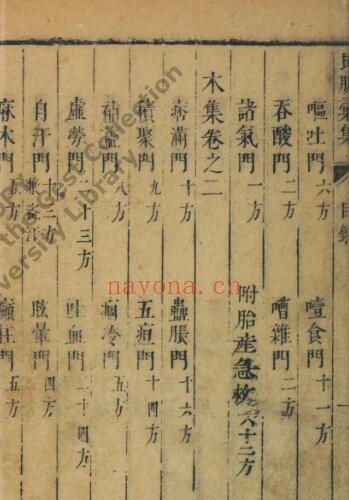 良朋彙集 目錄
嘔吐門 六方 噎食門 十一方
吞酸門 二方 嘈雜門 二方
諸氣門 一方 附胎產急救 六十二方
木集卷之二
痞滿門 十方 蠱脹門 十六方
積聚門 九方 五疸門 十四方
補益門 八方 痼冷門 五方
虛勞門 二十三方 吐血門 二十四方
自汗門 十二方 兼盜汗 眩暈門 四方
麻木門 方 癲狂門 五方
the Gest Collection
versity Library
nayona.cn